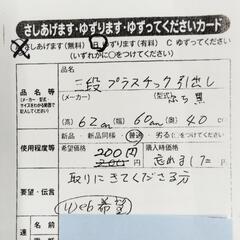 さしあげます・ゆずります・ゆずってくださいカード
A さしあげます(無料) B ゆずります(有料) C ゆずってください
(いずれかに〇をつけてください)
品名等
(メーカー・型式
サイズをわかる範囲で
記入してください)
品名
三段プラスチック引出し
(メーカー) (型式) ふち黒
(高) 62cm (幅) 60cm (奥) 40
使用程度等
新品・新品同様・普通・劣る(〇をつけてください)
希望価格 200円
購入時価格
忘れました
要望・伝言
取りにきてくださる方
(Web希望)
連